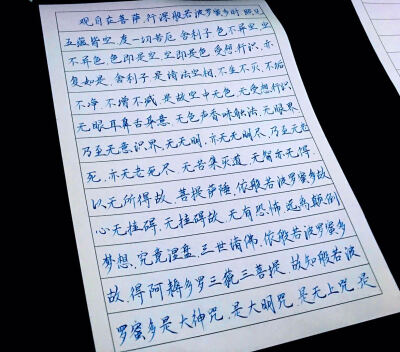 观自在菩萨,行深般若波罗蜜多时,照见
五蕴皆空,度一切苦厄,舍利子,色不异空,空
不异色,色即是空,空即是色,受想行识,亦
复如是,舍利子,是诸法空相,不生不灭,不垢
不净,不增不减,是故空中无色,无受想行识,
无眼耳鼻舌身意,无色声香味触法,无眼界
乃至无意识界,无无明,亦无无明尽,乃至无老
死,亦无老死尽,无苦集灭道,无智亦无得,
以无所得故,菩提萨陲,依般若波罗蜜多故
心无挂碍,无挂碍故,无有恐怖,远离颠倒
梦想,究竟涅盘,三世诸佛,依般若波罗蜜多
故,得阿耨多罗三藐三菩提,故知般若波
罗蜜多是大神咒,是大明咒,是无上咒,是